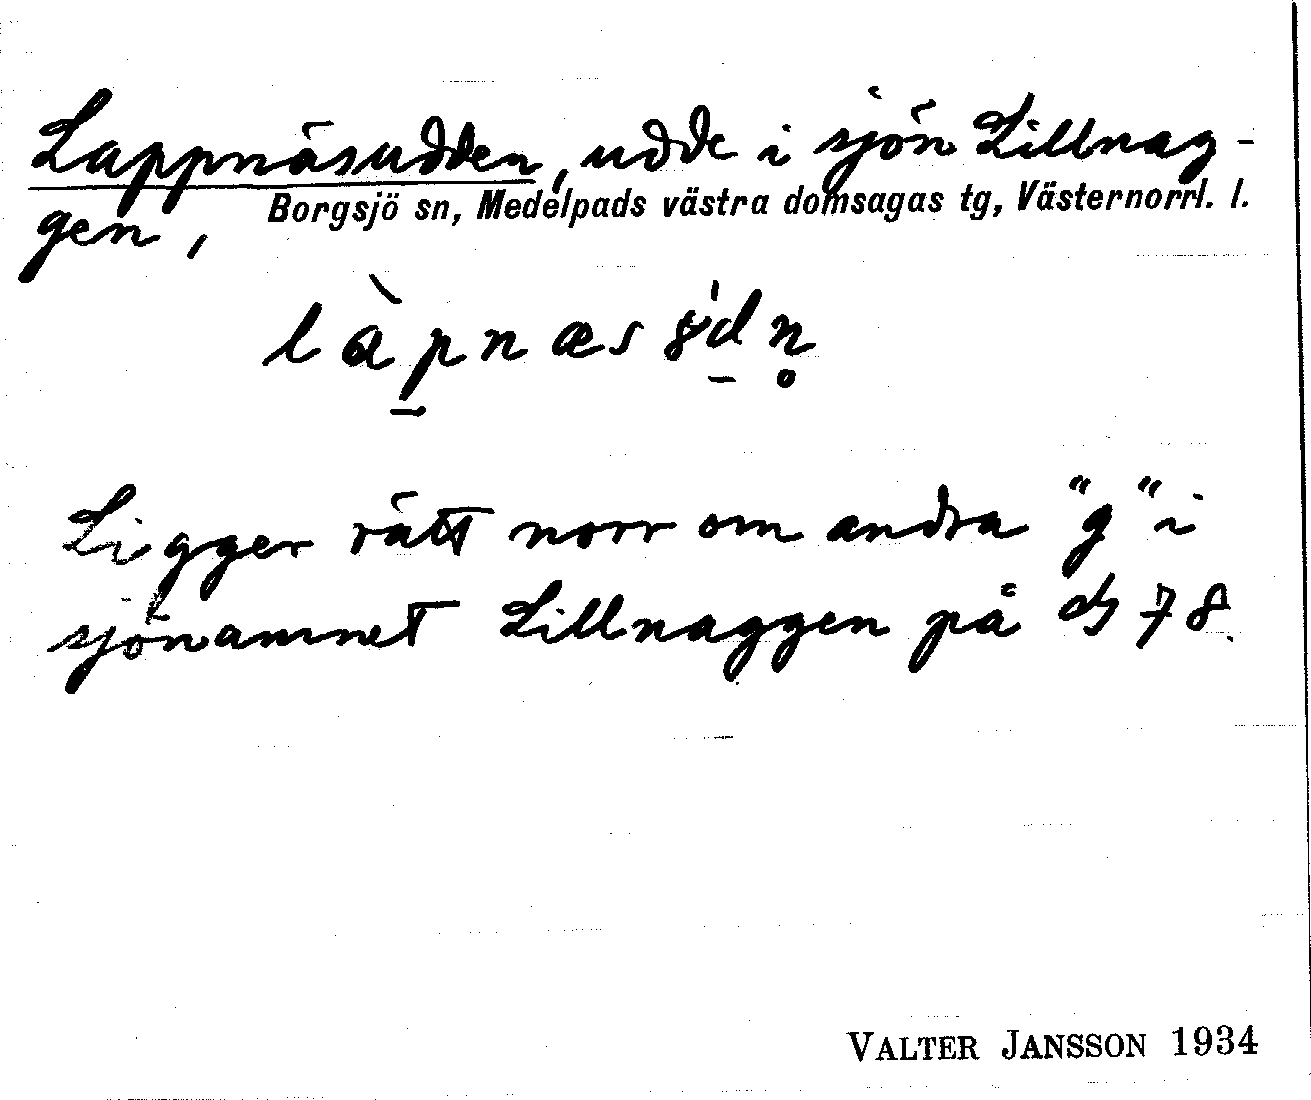 Lappnäsudden, udde i sjön Lillnag-
Borgsjö sn, Medelpads västra domsagas tg, Västernorrl. l.
gen,
Ligger rätt norr om andra "g" i
sjönamnet Lillnaggen på ds 78.
VALTER JANSSON 1934